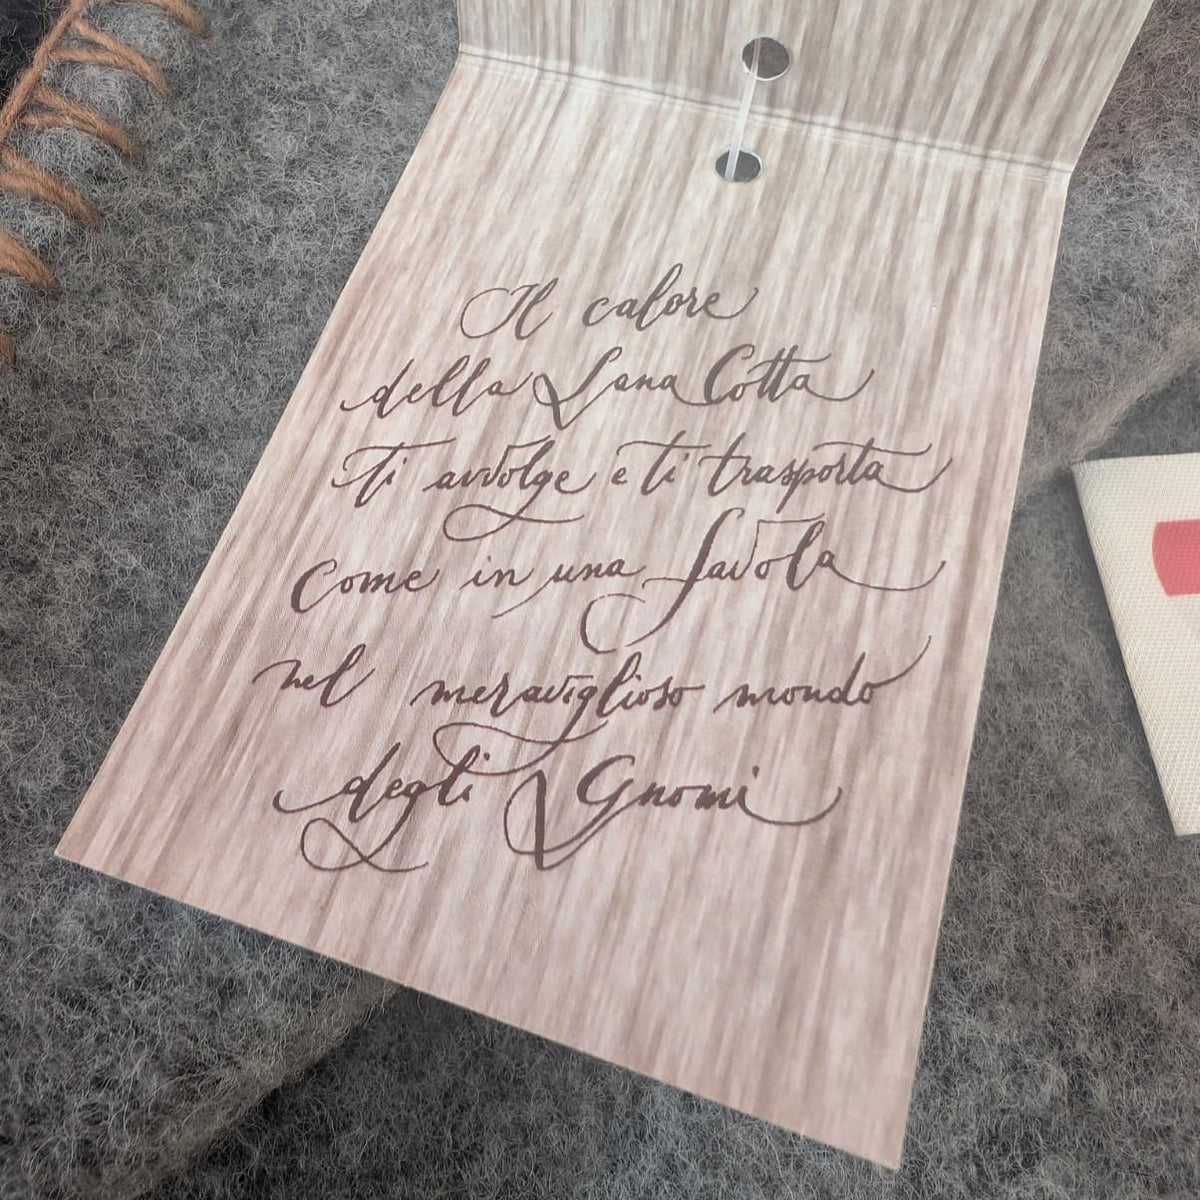 Il calore
della Lana Cotta
ti avvolge e ti trasporta
Come in una favola
nel meraviglioso mondo
degli Gnomi